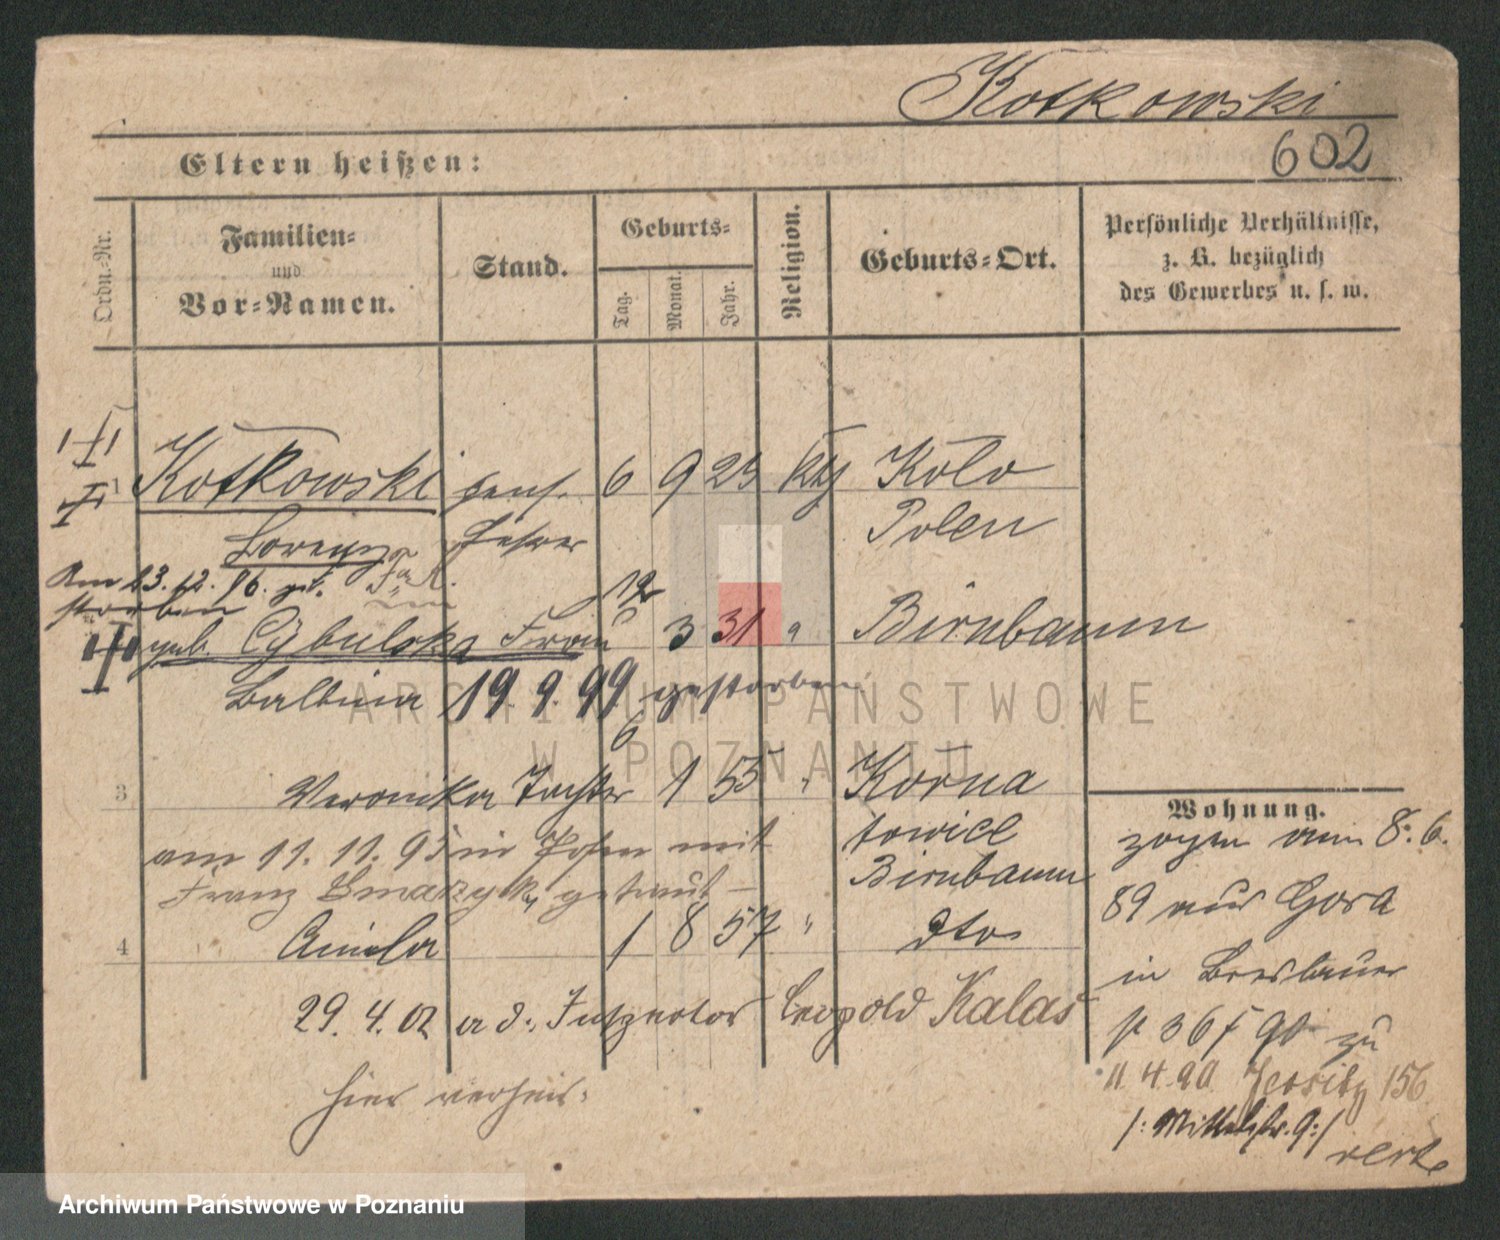 Kotkowski
602
Eltern heißen:
Ordn.-Nr.
Familien-
und
Vor-Namen.
Stand.
Geburts-
Tag.
Monat.
Jahr.
Religion.
Geburts-Ort.
Persönliche Verhältnisse,
z. B. bezüglich
des Gewerbes u. s. w.
1 Kotkowski pens. 6 9 25 kth Kolo
Lorenz Lehrer Polen
Am 23. 12. 96. ge-
storben
geb. Cybulska Frau 3 31 " Birnbaum
Balbina 19. 9. 99 gestorben
6
3 Veronika Tochter 1 55 " Korna
am 11. 11. 95 in Posen mit towice
Franz getraut – Birnbaum
4 Aniela 1 8 57 " dto
29. 4. 02 a. d. Inspector Leopold Kalas
hier verheir.
Wohnung.
zogen am 8. 6.
89 aus Gora
in Breslauer
st 36 f 90 zu
11 4 90 Jersitz 156
/: Mittelstr. 9 :/
verte
ARCHIWUM PAŃSTWOWE
W POZNANIU
Archiwum Państwowe w Poznaniu